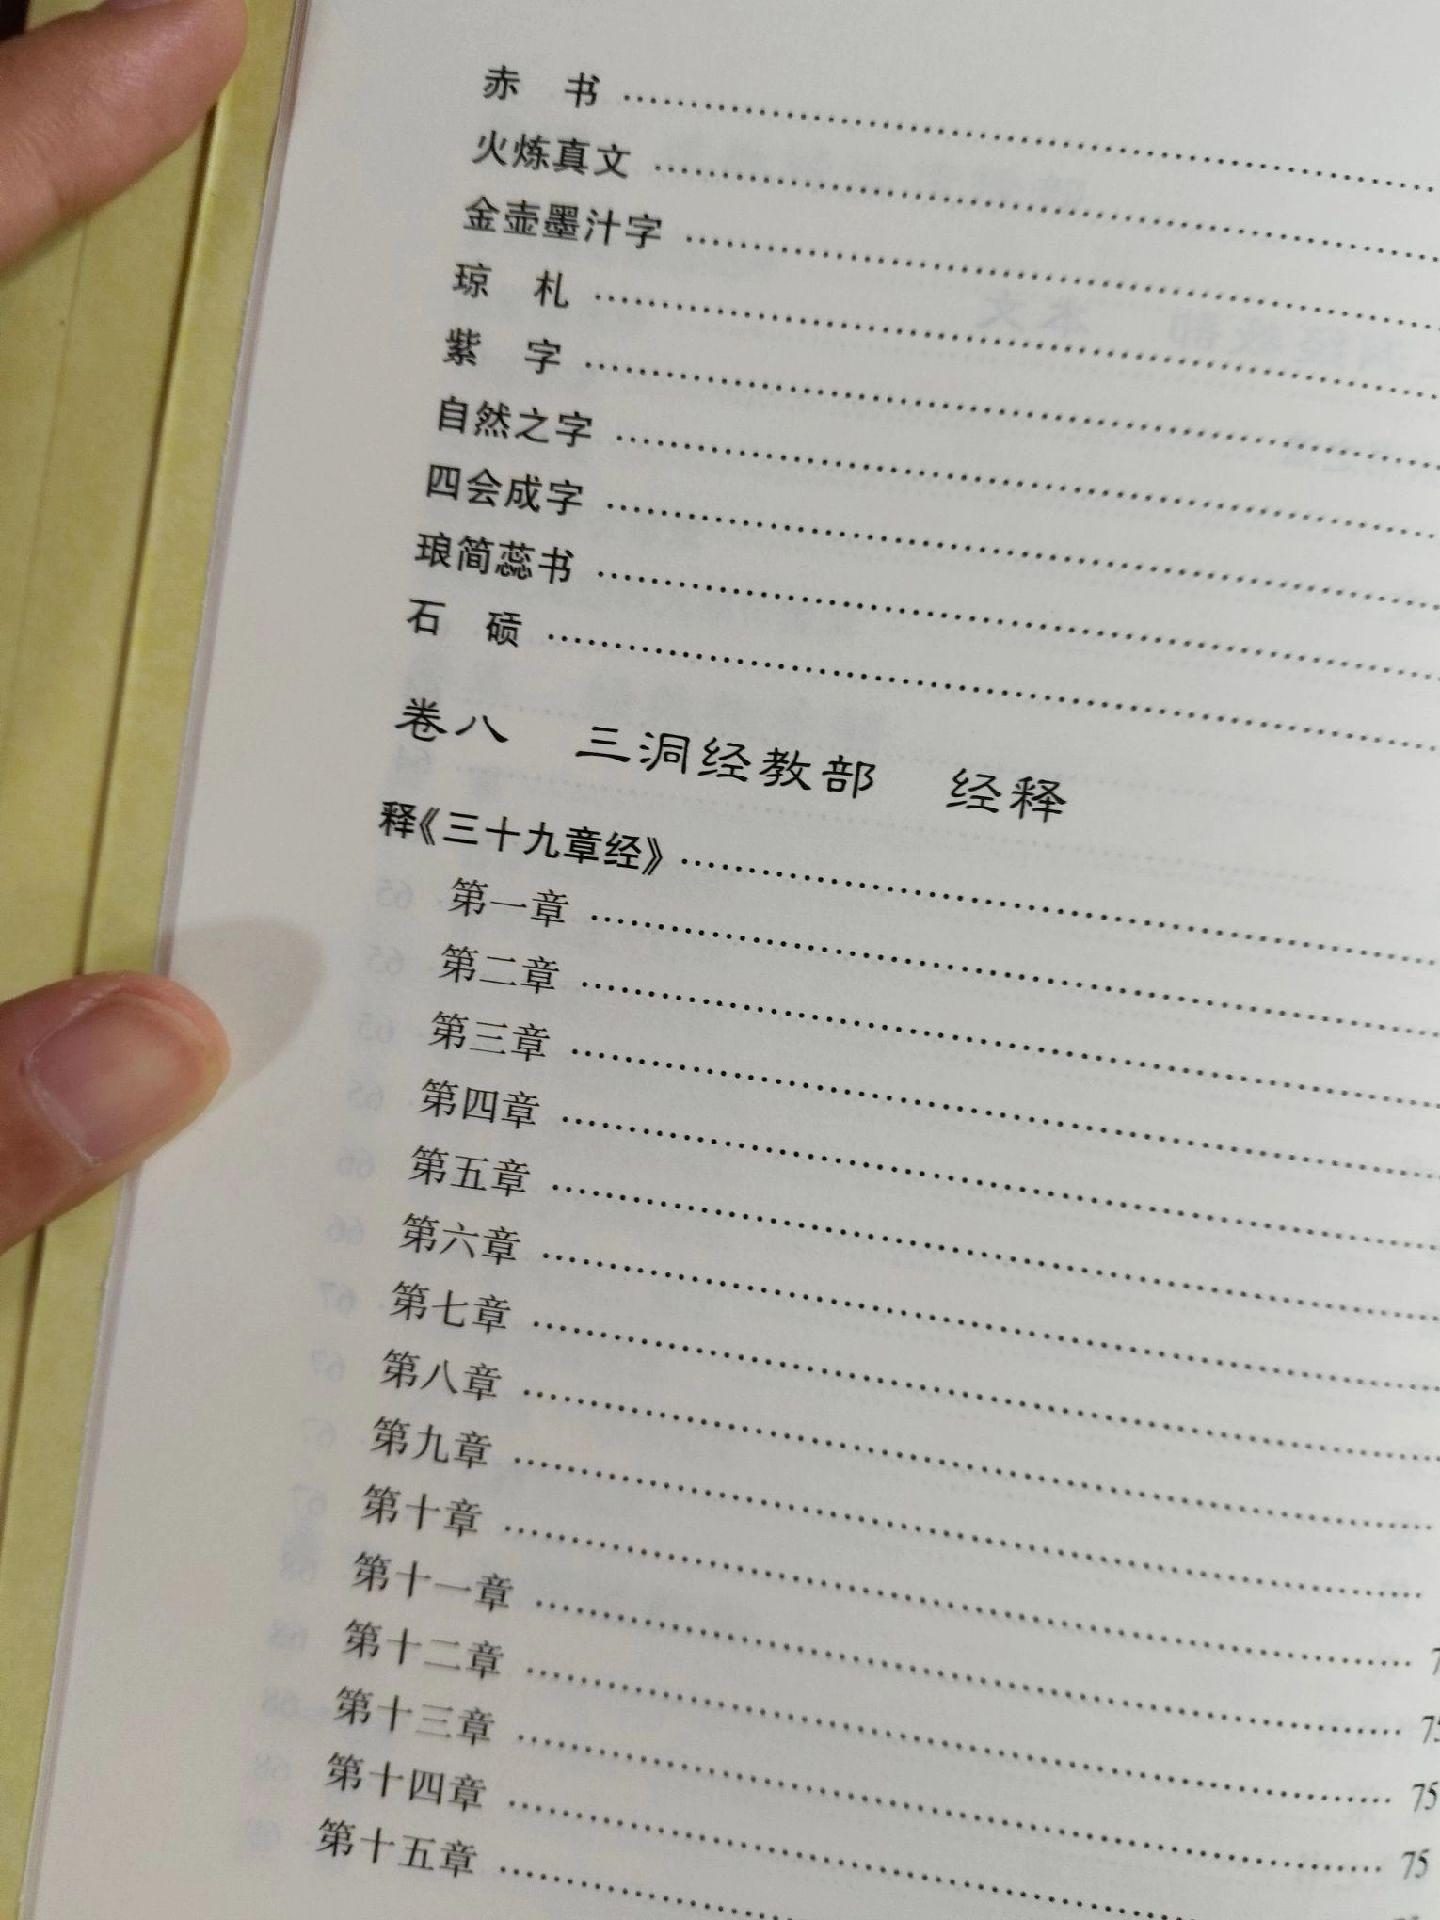 赤　书
火炼真文
金壶墨汁字
琼　札
紫　字
自然之字
四会成字
琅简蕊书
石　碛
卷八　三洞经教部　经释
释《三十九章经》
第一章
第二章
第三章
第四章
第五章
第六章
第七章
第八章
第九章
第十章
第十一章
第十二章 75
第十三章 75
第十四章 75
第十五章